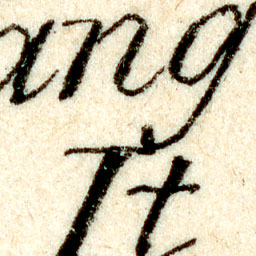 ang
It